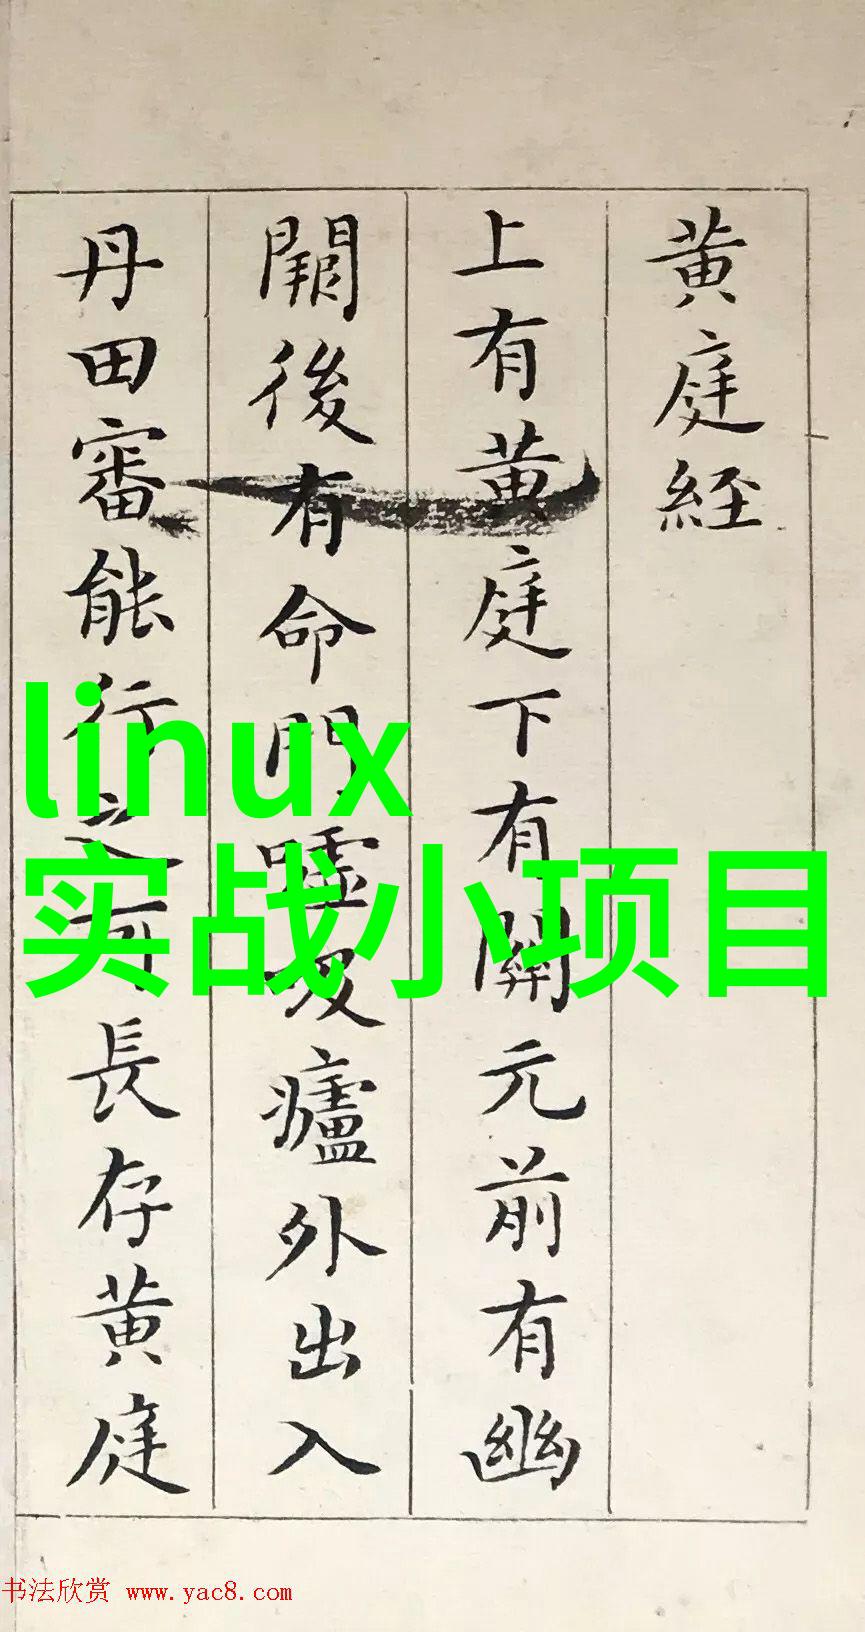 黄庭經
上有黄庭下有關元前有幽
闕後有命門嘘吸廬外出入
丹田審能行之可長存黄庭
linux
实战小项目
书法欣赏 www.yac8.com